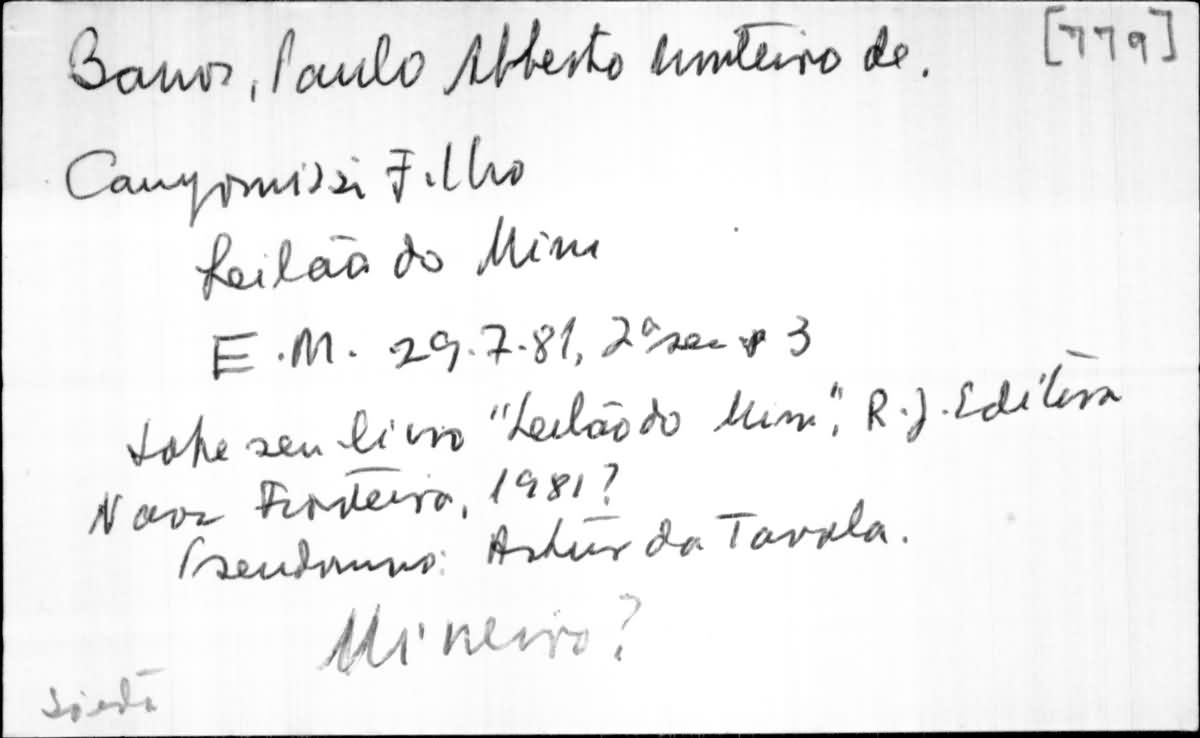 Barros, Paulo Alberto Monteiro de. [779]
Campomizzi Filho
Leilão do Mim
E.M. 29.7.81, 2ª sec p 3
sobre seu livro "Leilão do Mim", R.J. Editora
Nova Fronteira, 1981?
Pseudonimo: Artur da Tavola.
Mineiro?